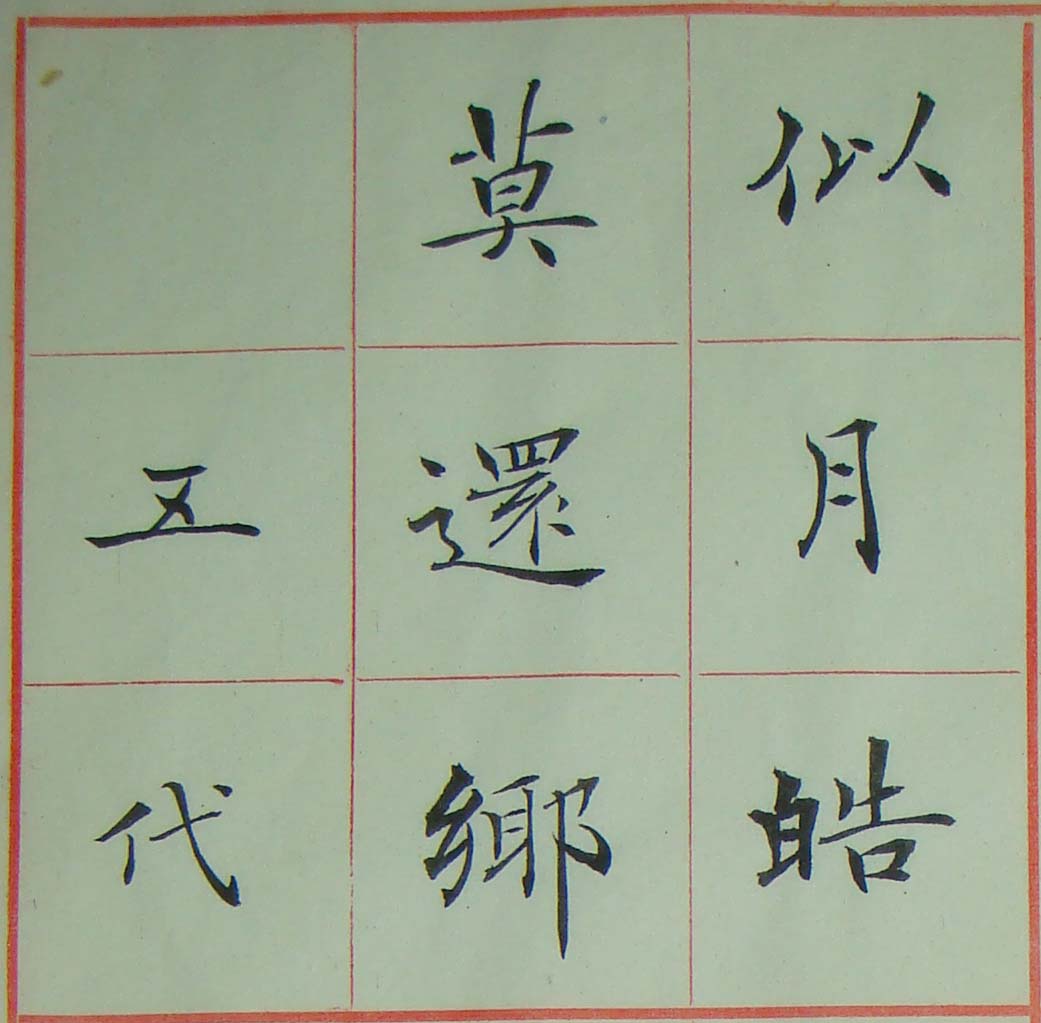 似月皓
莫還鄉
五代